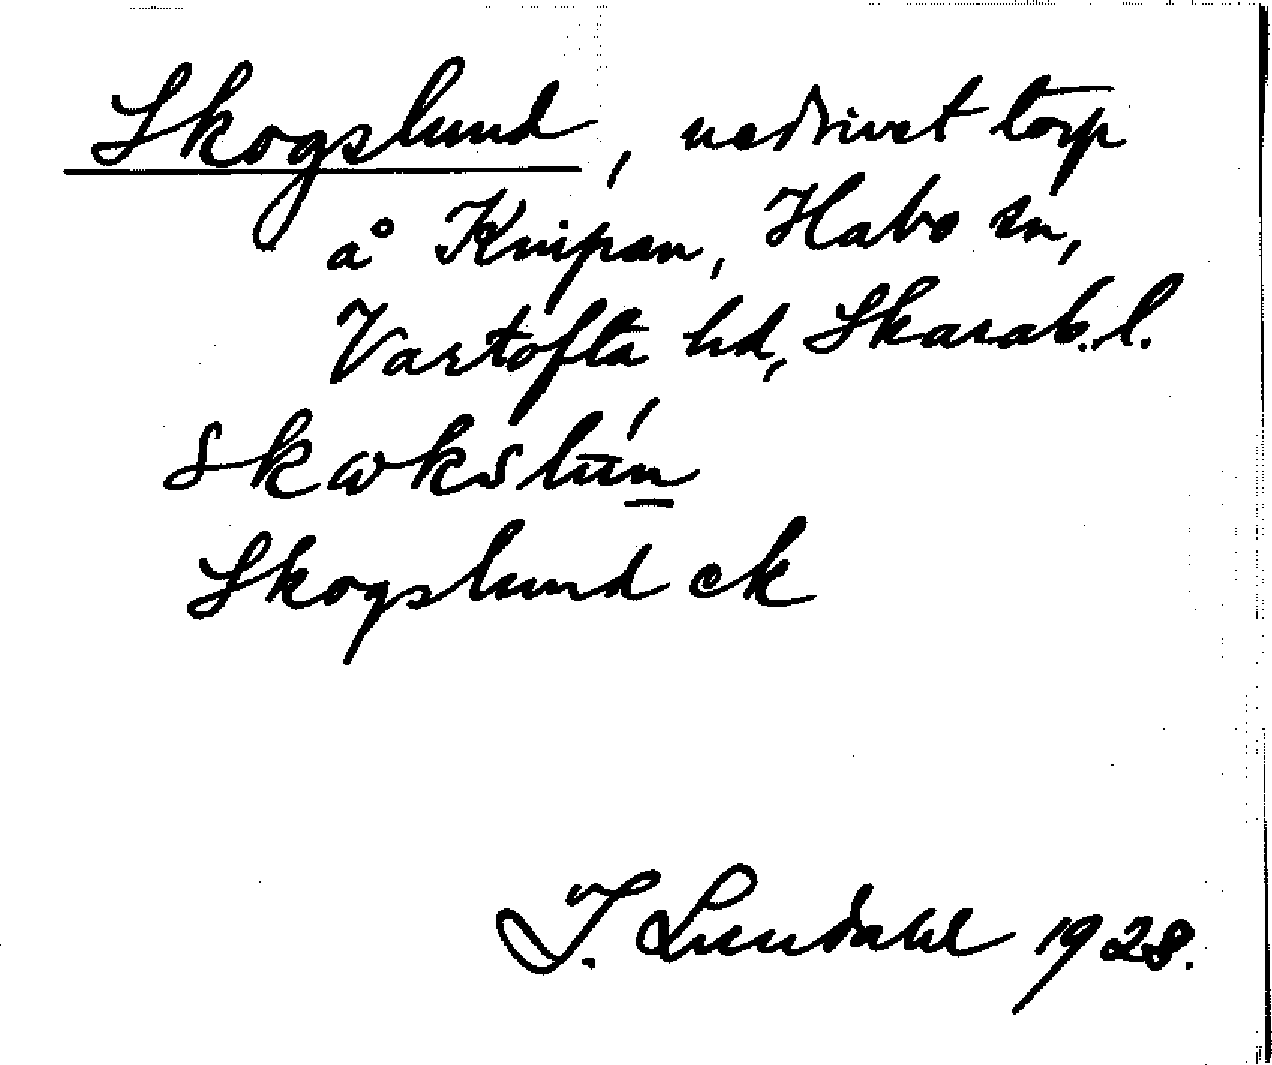 Skogslund, nedrivet torp
å Knipan, Habo sn,
Vartofta hd, Skarab. l.
Skogslund ek
I. Lundahl 1928.